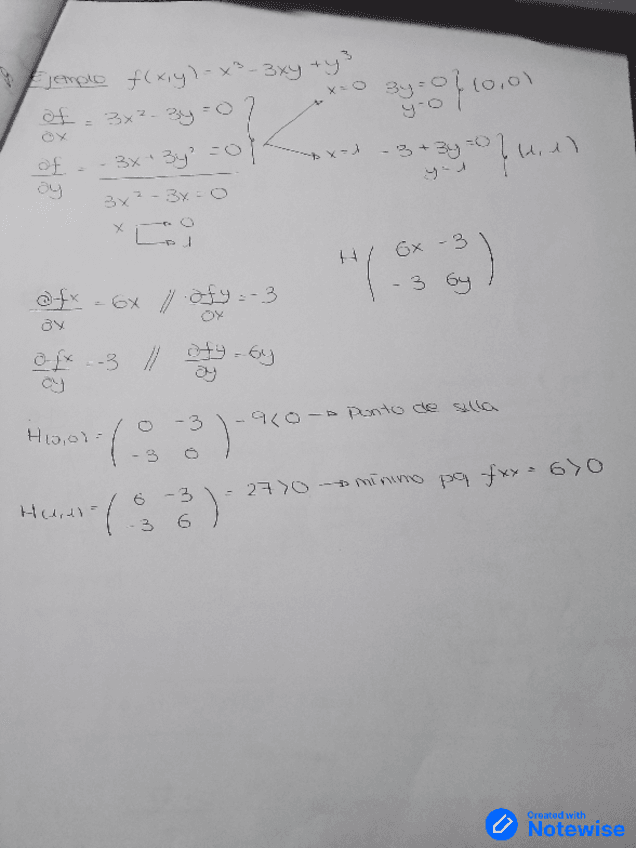 Ejemplo f(x,y) = x³ - 3xy + y³
∂f/∂x = 3x² - 3y = 0
x=0 3y=0 } (0,0)
y=0
∂f/∂y = -3x + 3y² = 0
x=1 -3+3y=0 } (1,1)
y=1
3x² - 3x = 0
x → 0
→ 1
H ( 6x -3
-3 6y )
∂fx/∂x = 6x // ∂fy/∂x = -3
∂fx/∂y = -3 // ∂fy/∂y = 6y
H(0,0) = ( 0 -3
-3 0 ) -9<0 → punto de silla
H(1,1) = ( 6 -3
-3 6 ) = 27>0 → mínimo pq fxx = 6>0
Created with
Notewise